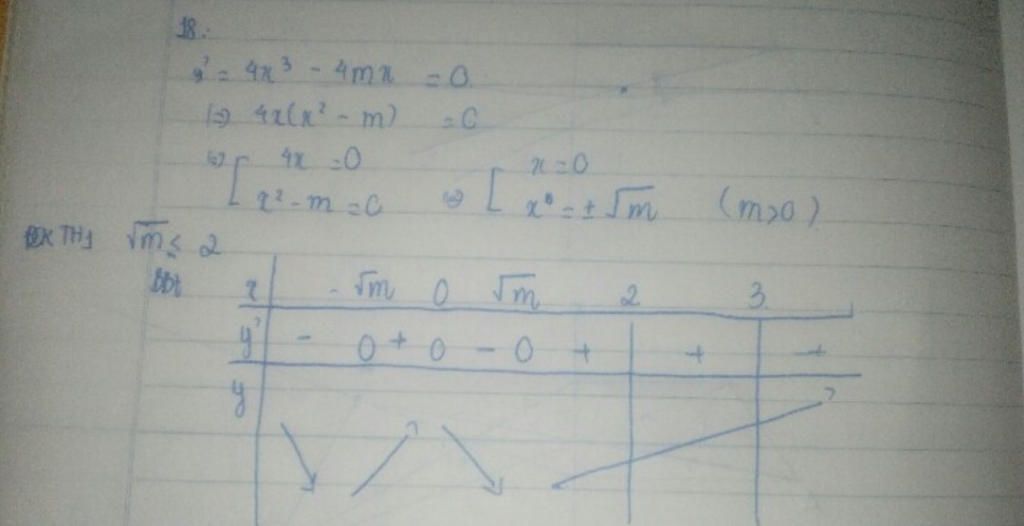 18.
y' = 4x³ - 4mx = 0
(=) 4x(x² - m) = 0
(=) [ 4x = 0 (=) [ x = 0
x² - m = 0 x = ± √m (m>0)
TH1 √m ≤ 2
BBt
x - √m 0 √m 2 3
y' - 0 + 0 - 0 + + +
y